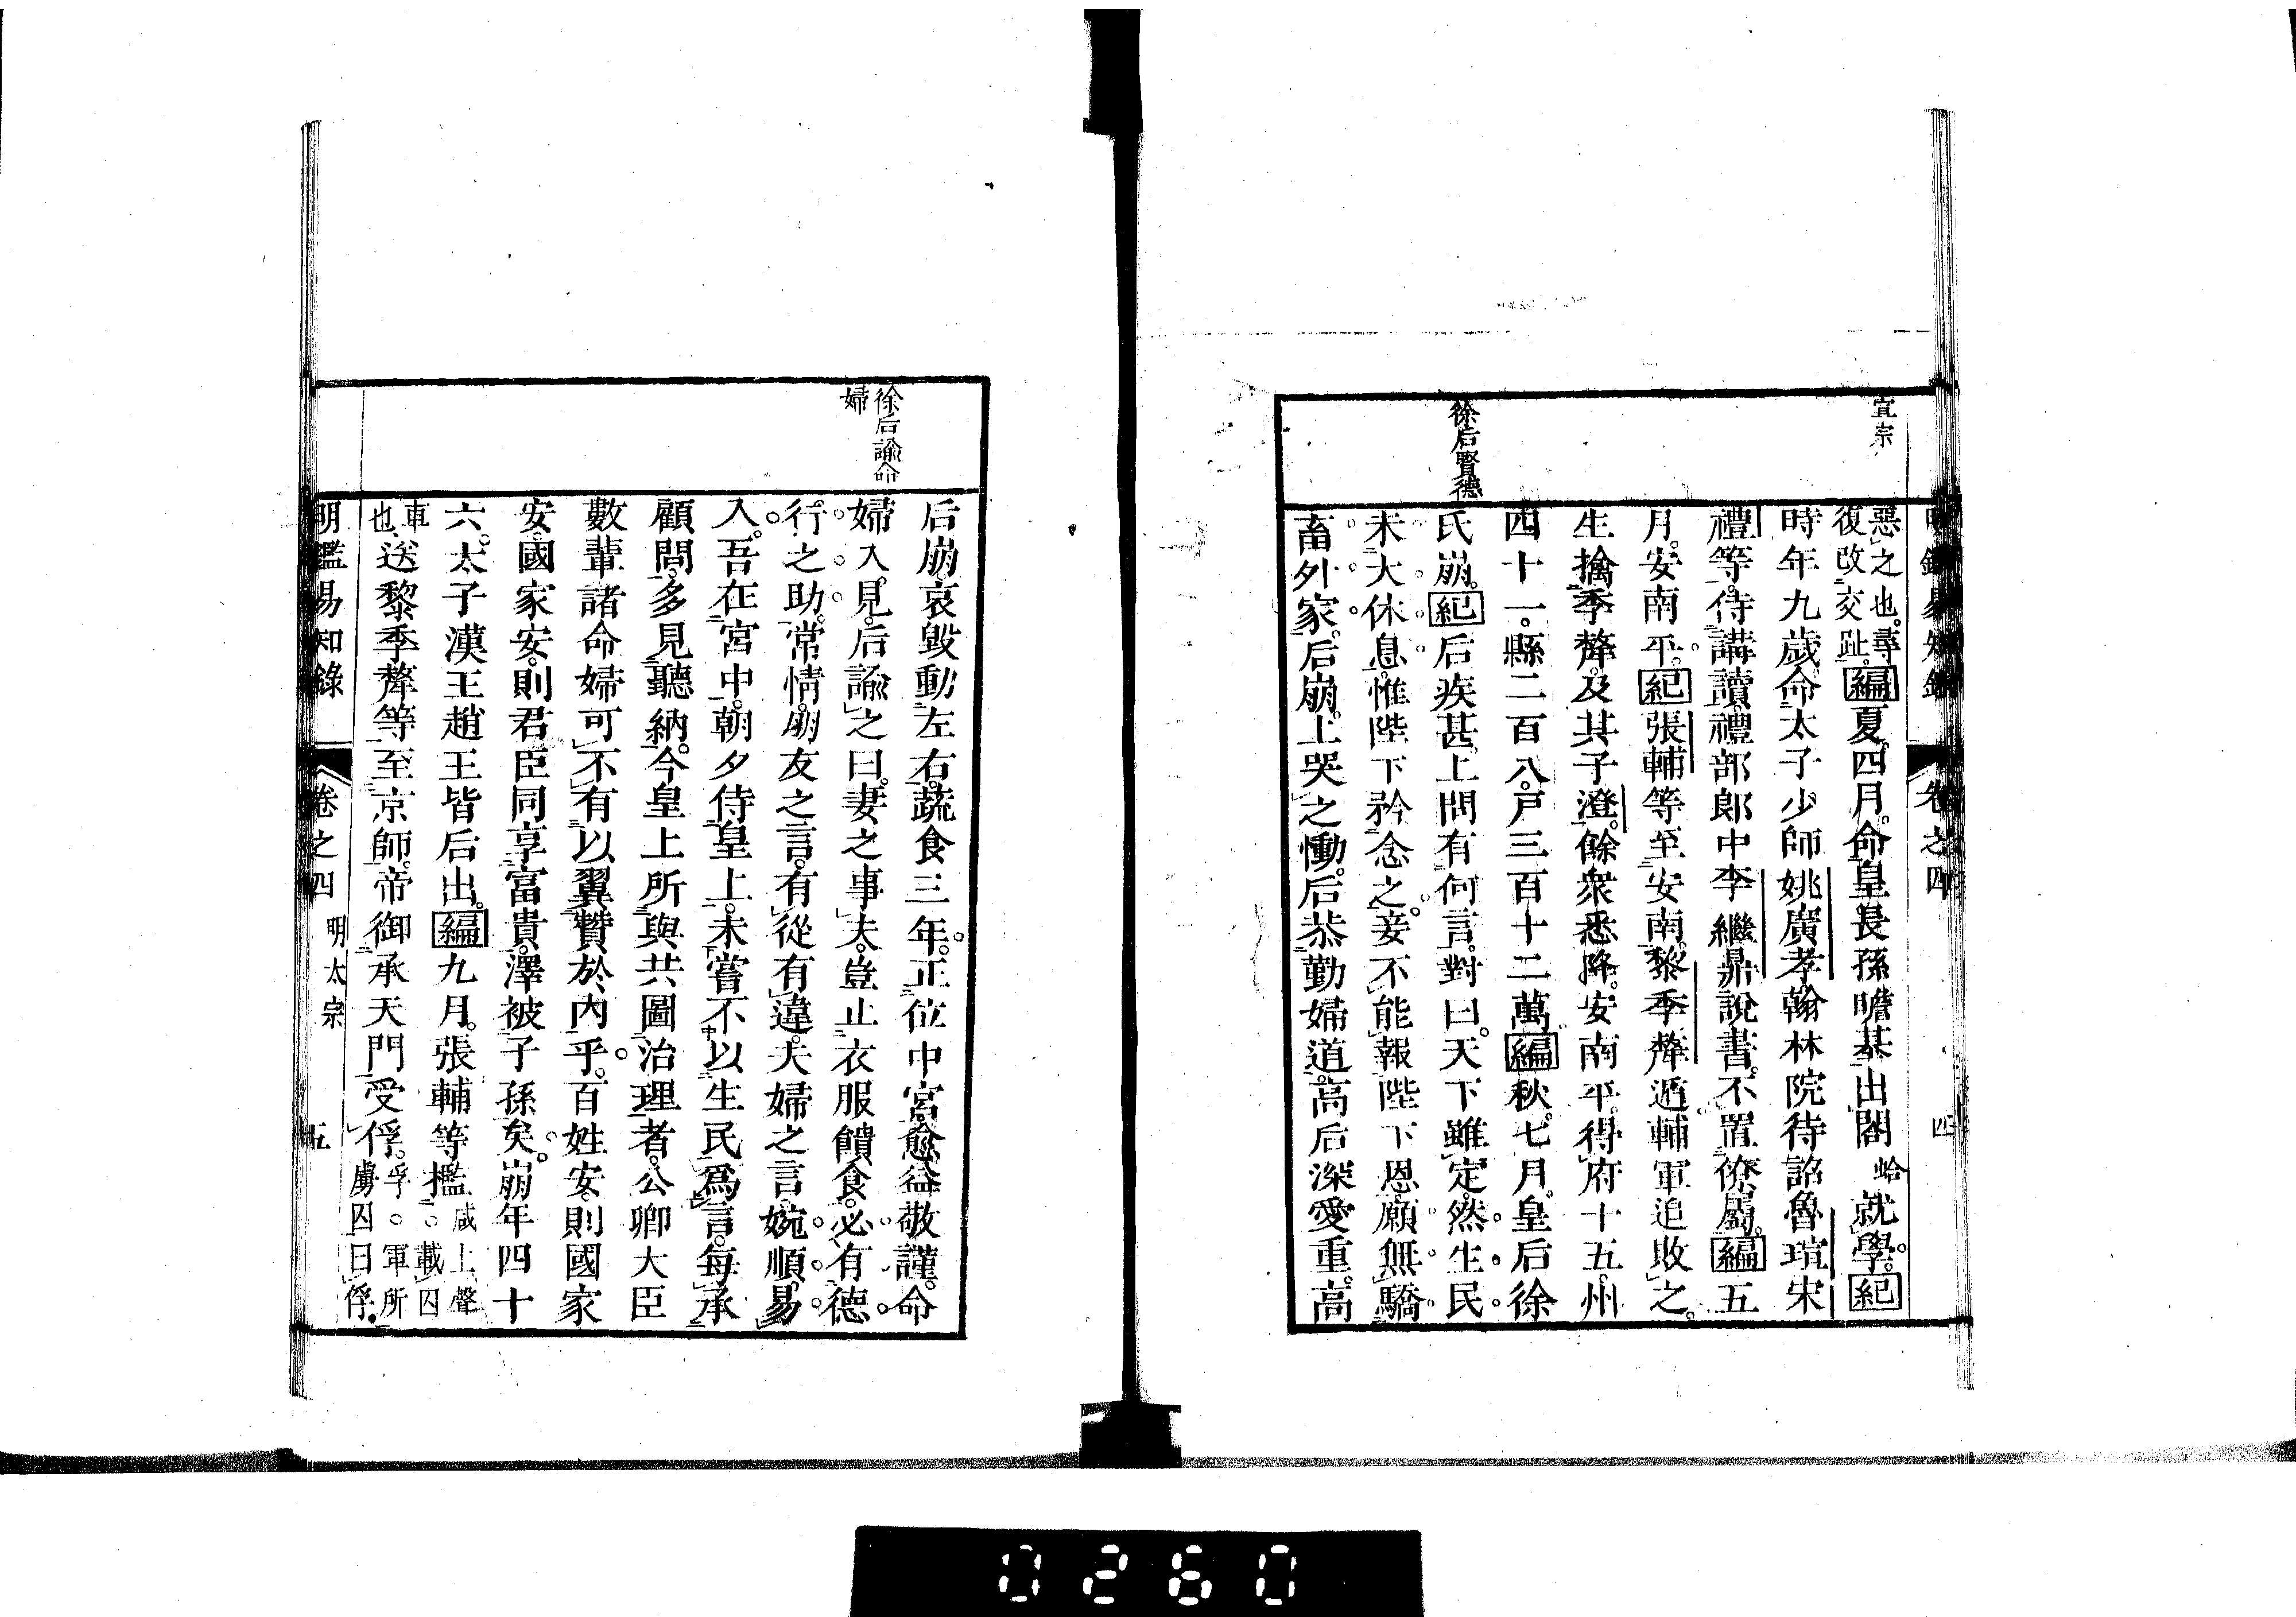 明鑑易知錄 卷之四 四
宣宗
惡之也。尋
復改交趾。編夏。四月。命皇長孫瞻基出閣蛤就學。紀
時年九歲。命太子少師姚廣孝。翰林院待詔魯瑄宋
禮等。侍講讀。禮部郎中李繼鼎說書。不置僚屬。編五
月。安南平。紀張輔等至安南。黎季犛遁。輔軍追敗之。
生擒季犛。及其子澄。餘衆悉降。安南平。得府十五。州
四十一。縣二百八。戸三百十二萬。編秋。七月。皇后徐
徐后賢德
氏崩。紀后疾甚。上問有何言。對曰。天下雖定。然生民
未大休息。惟陛下矜念之。妾不能報陛下恩。願無驕
畜外家。后崩。上哭之慟。后恭勤婦道。高后深愛重。高
后崩。哀毀動左右。蔬食三年。正位中宮。愈益敬謹。命
徐后諭命
婦
婦入見。后諭之曰。妻之事夫。豈止衣服饋食。必有德
行之助。常情。朋友之言。有從有違。夫婦之言。婉順易
入。吾在宮中。朝夕侍皇上。未嘗不以生民爲言。每承
顧問。多見聽納。今皇上所與共圖治理者。公卿大臣
數輩。諸命婦可不有以翼贊於內乎。百姓安。則國家
安。國家安。則君臣同享富貴。澤被子孫矣。崩年四十
六。太子漢王趙王皆后出。編九月。張輔等檻咸上聲。載囚
車也。送黎季犛等至京師。帝御承天門受俘。孚。軍所虜囚曰俘。
明鑑易知錄 卷之四 明太宗 五
0260